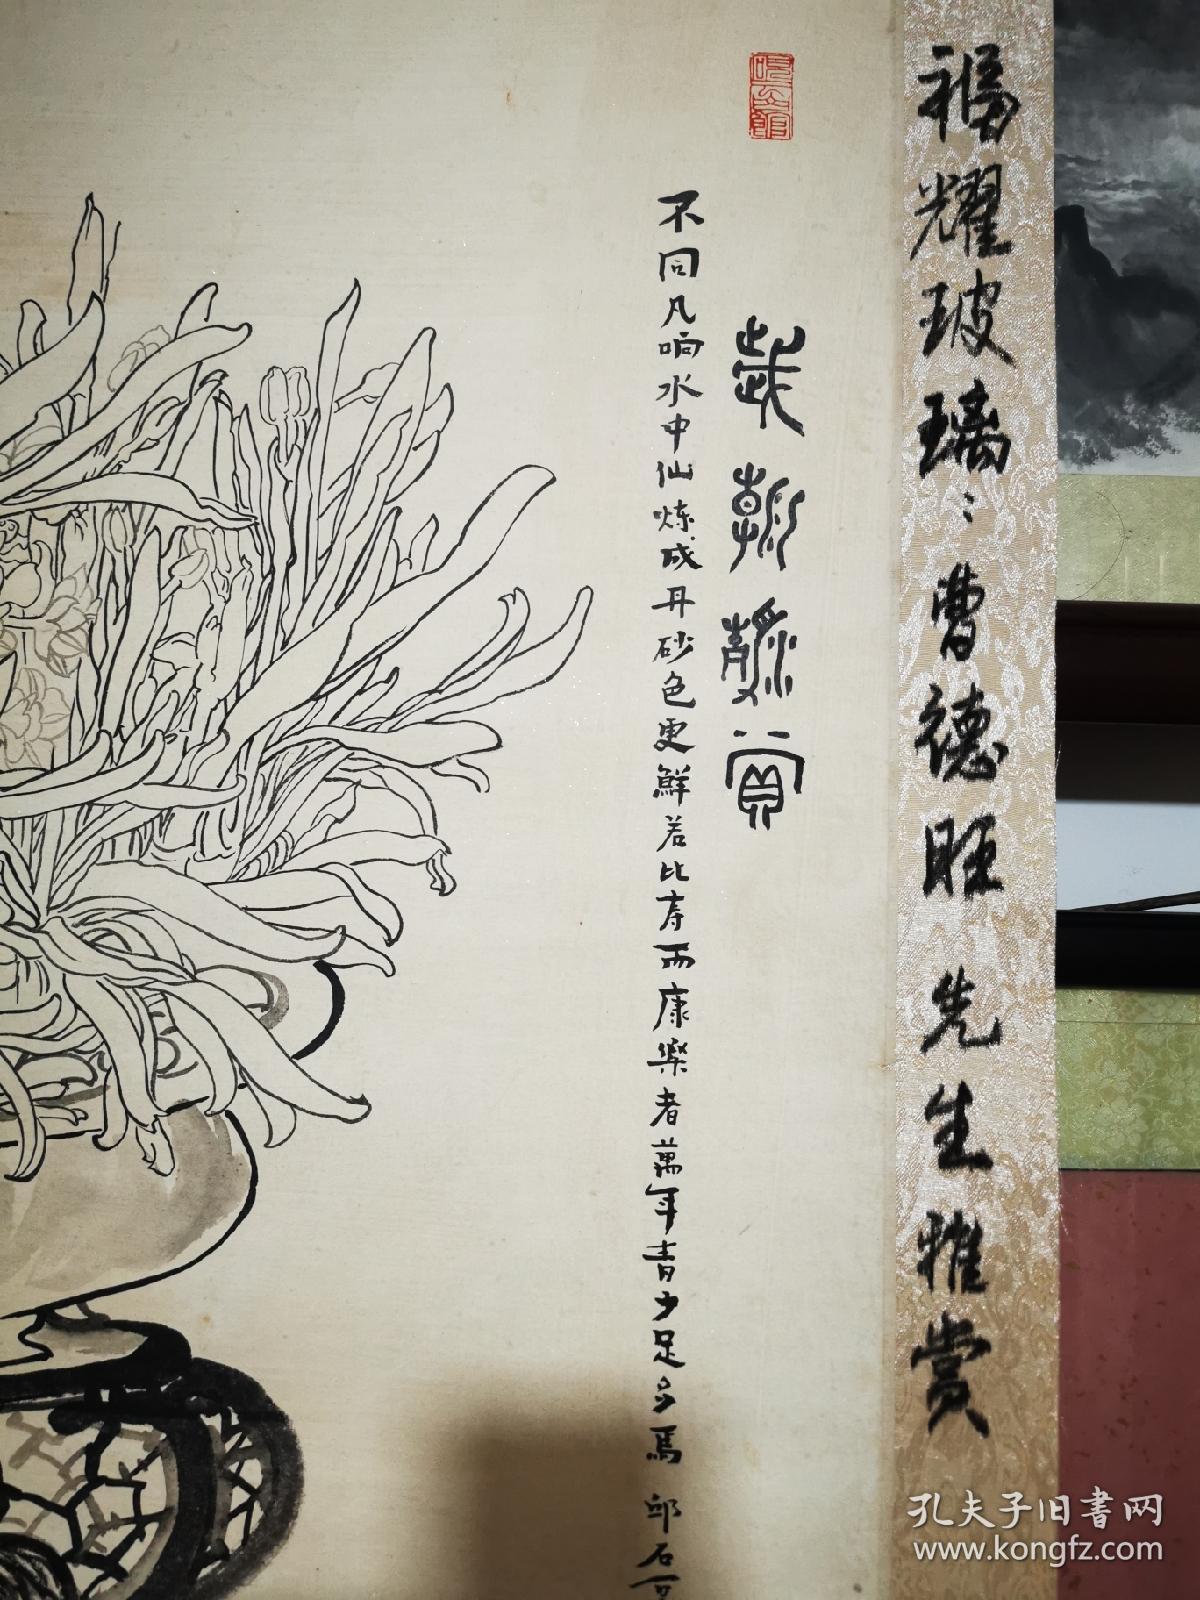 福耀玻璃:曹德旺先生雅赏
歲朝靜賞
不同凡响水中仙炼成丹砂色更鮮若比寿而康樂者萬年青少足多焉 邱石
孔夫子旧书网
www.kongfz.com